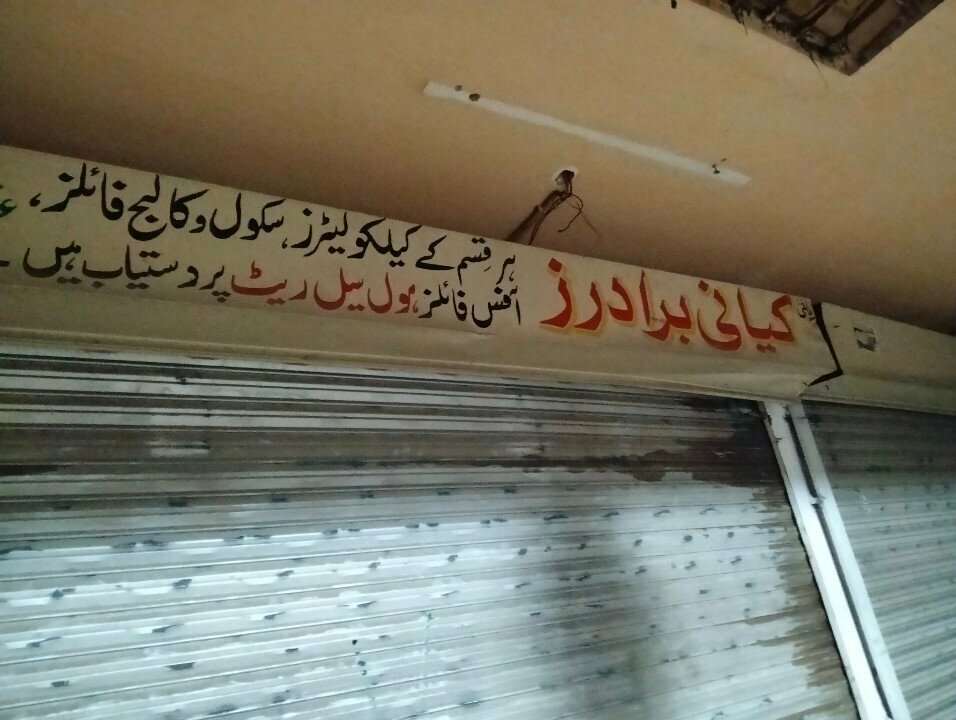 کیانی برادرز
ہر قِسم کے کیلکولیٹرز، سکول و کالج فائلز،
آفس فائلز ہول سیل ریٹ پر دستیاب ہیں